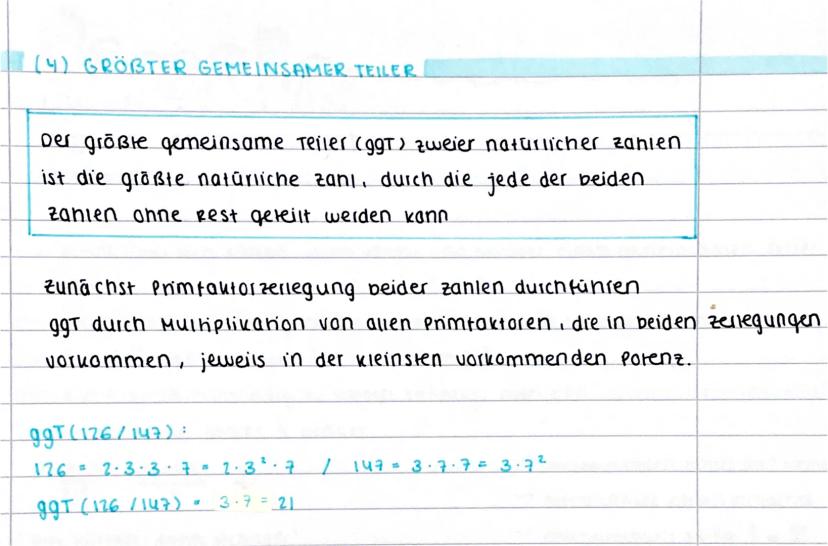 (4) GRÖßTER GEMEINSAMER TEILER
Der größte gemeinsame Teiler (ggT) zweier natürlicher Zahlen
ist die größte natürliche Zahl, durch die jede der beiden
Zahlen ohne Rest geteilt werden kann
Zunächst Primfaktorzerlegung beider Zahlen durchführen
ggT durch Multiplikation von allen Primfaktoren, die in beiden Zerlegungen
vorkommen, jeweils in der kleinsten vorkommenden Potenz.
ggT (126/147):
126 = 2·3·3·7 = 2·3²·7 / 147 = 3·7·7 = 3·7²
ggT (126/147) = 3·7 = 21